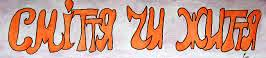 СМІТТЯ ЧИ ЖИТТЯ